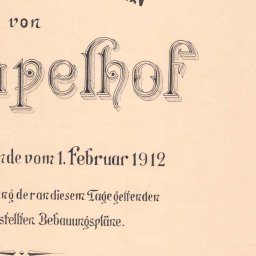 von
pelhof
nde vom 1. Februar 1912
ng der an diesem Tage geltenden
stellten Bebauungspläne.